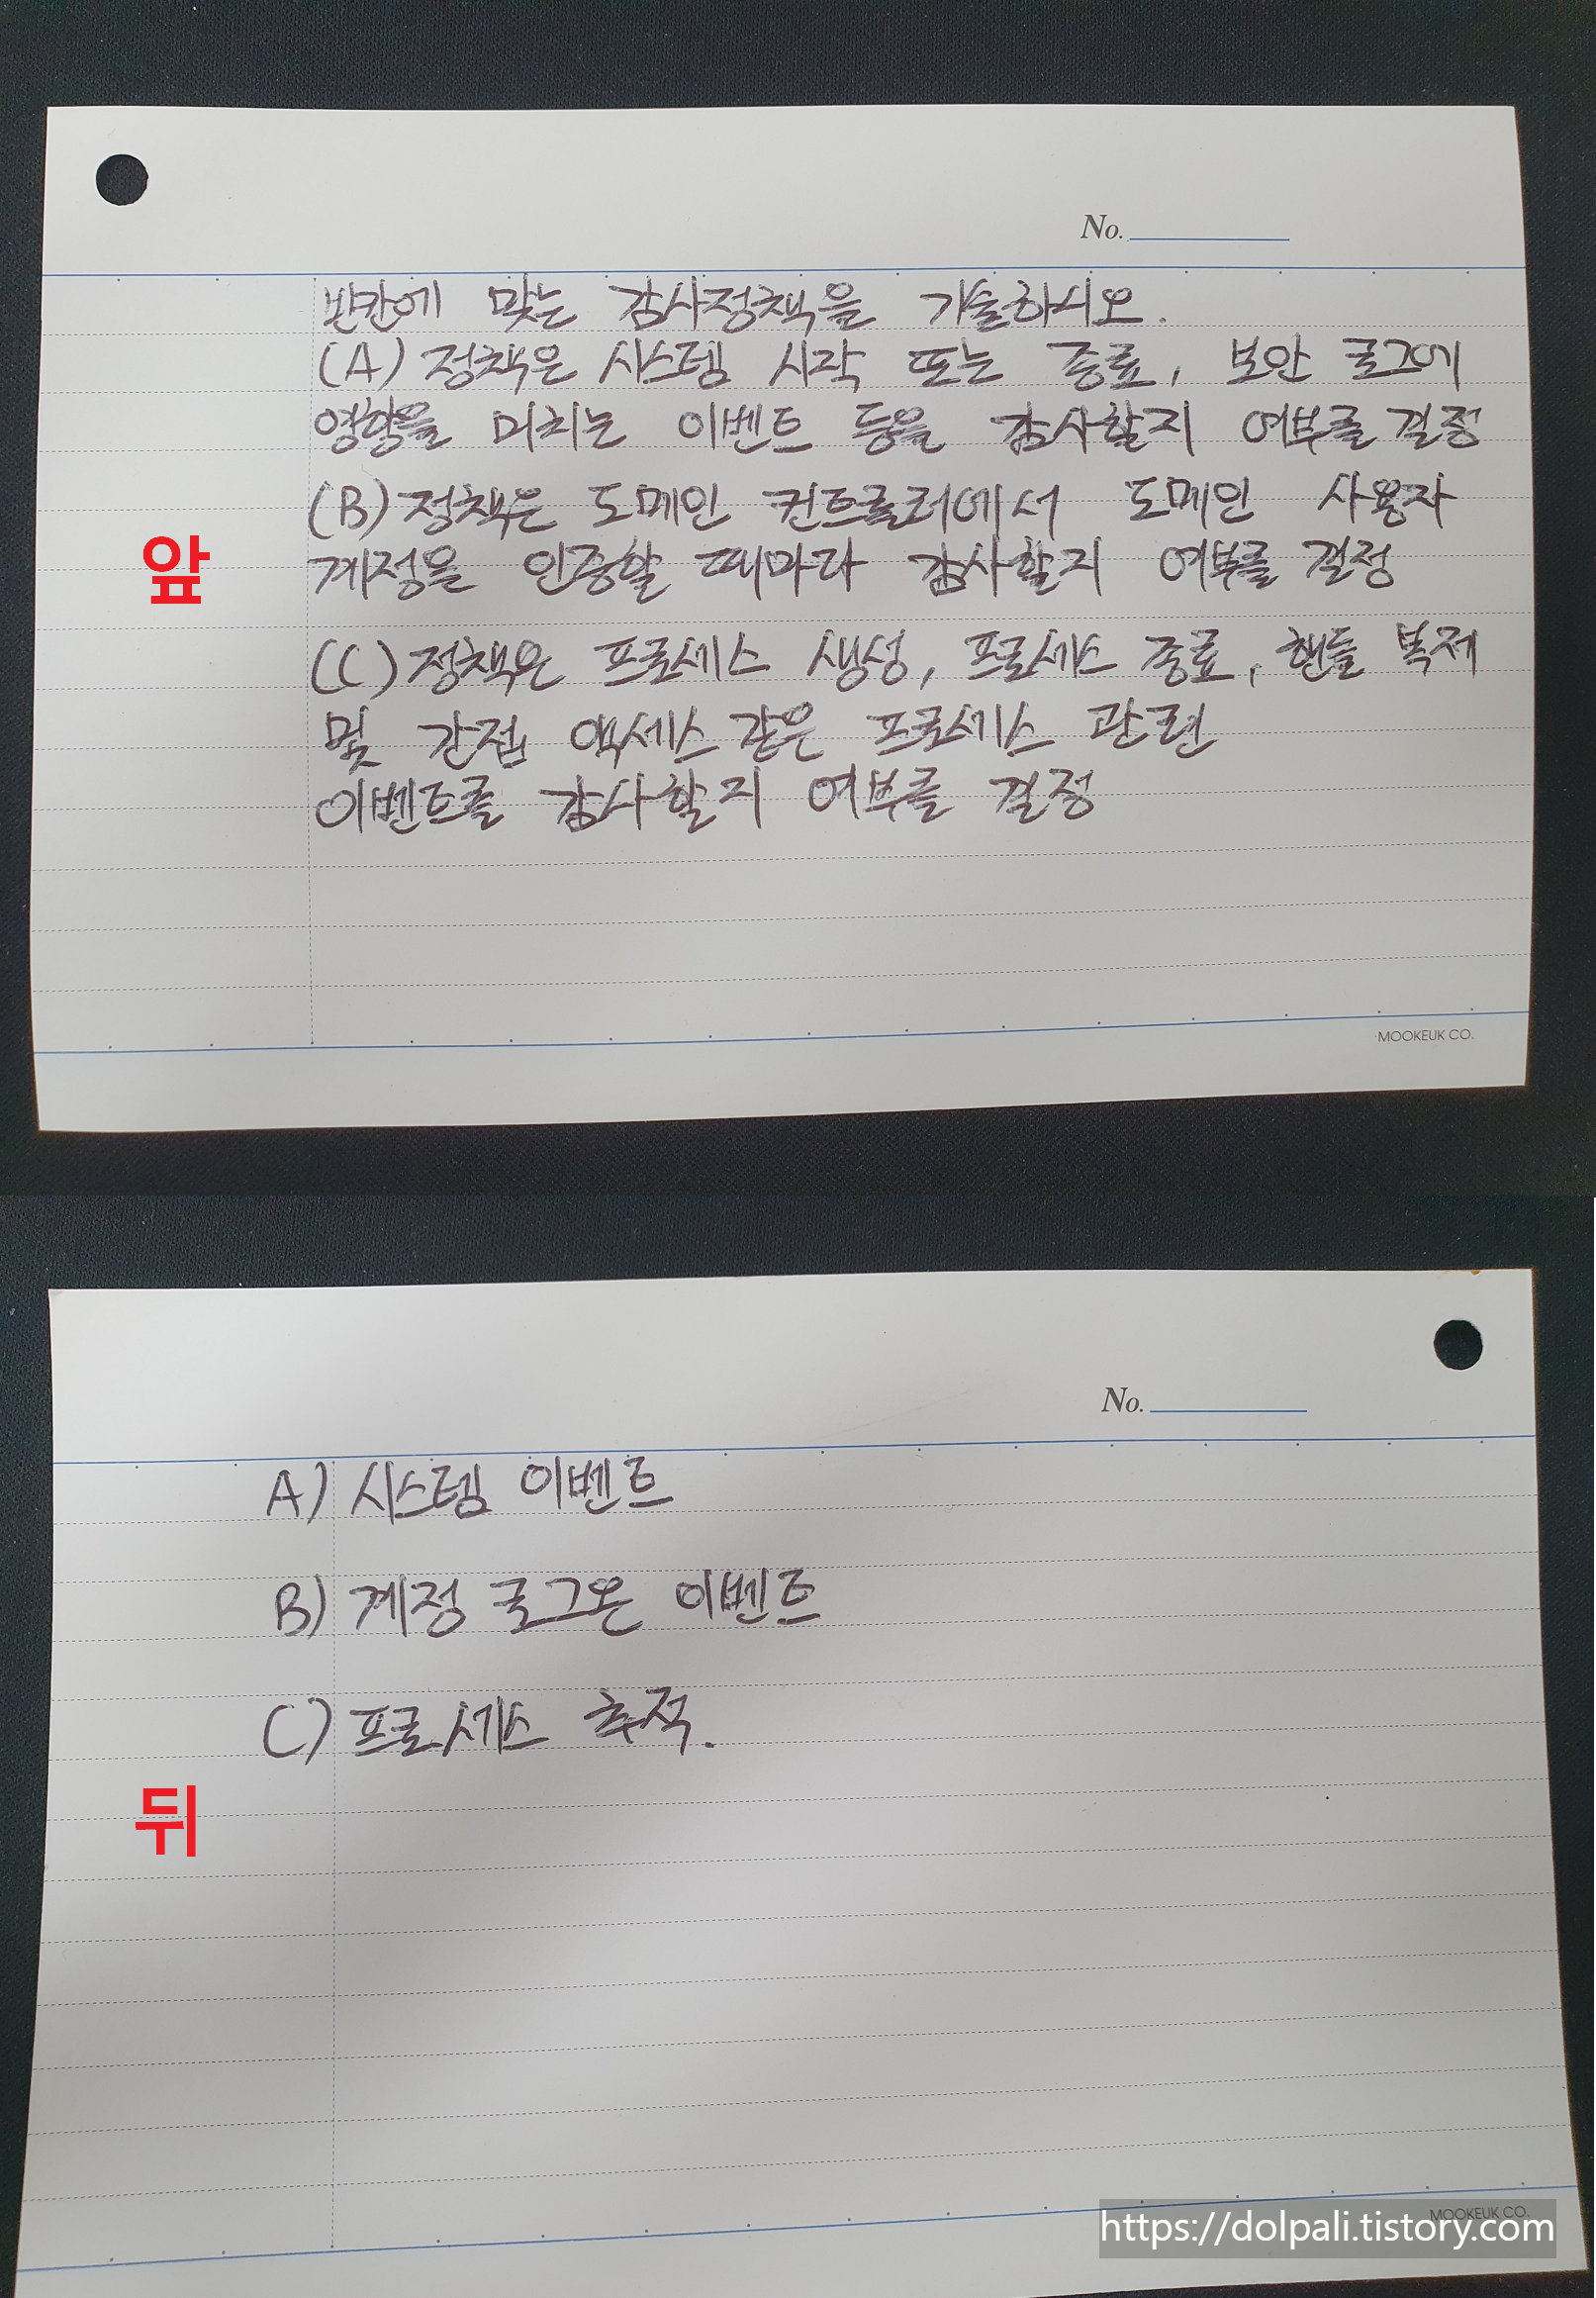 No.
빈칸에 맞는 감사정책을 기술하시오.
(A) 정책은 시스템 시작 또는 종료, 보안 로그에
영향을 미치는 이벤트 등을 감사할지 여부를 결정
(B) 정책은 도메인 컨트롤러에서 도메인 사용자
계정을 인증할 때마다 감사할지 여부를 결정
앞
(C) 정책은 프로세스 생성, 프로세스 종료, 핸들 복제
및 간접 액세스 같은 프로세스 관련
이벤트를 감사할지 여부를 결정
MOOKEUK CO.
No.
A) 시스템 이벤트
B) 계정 로그온 이벤트
C) 프로세스 추적.
뒤
MOOKEUK CO.
https://dolpali.tistory.com